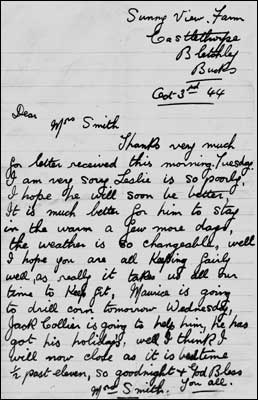 Sunny View. Farm
Castlethorpe
Bletchley
Bucks
Oct 3rd 44
Dear
Mrs Smith
Thanks very much
for letter received this morning. Tuesday.
I am very sorry Leslie is so poorly,
I hope he will soon be better.
It is much better for him to stay
in the warm a few more days,
the weather is so changeable, well
I hope you are all keeping fairly
well, as really it takes us all our
time to keep fit, Maurice is going
to drill corn tomorrow Wednesday,
Jack Collier is going to help him, he has
got his holidays, well I think I
will now close as it is bedtime
½ past eleven, so goodnight & God Bless
Mrs Smith. You all.